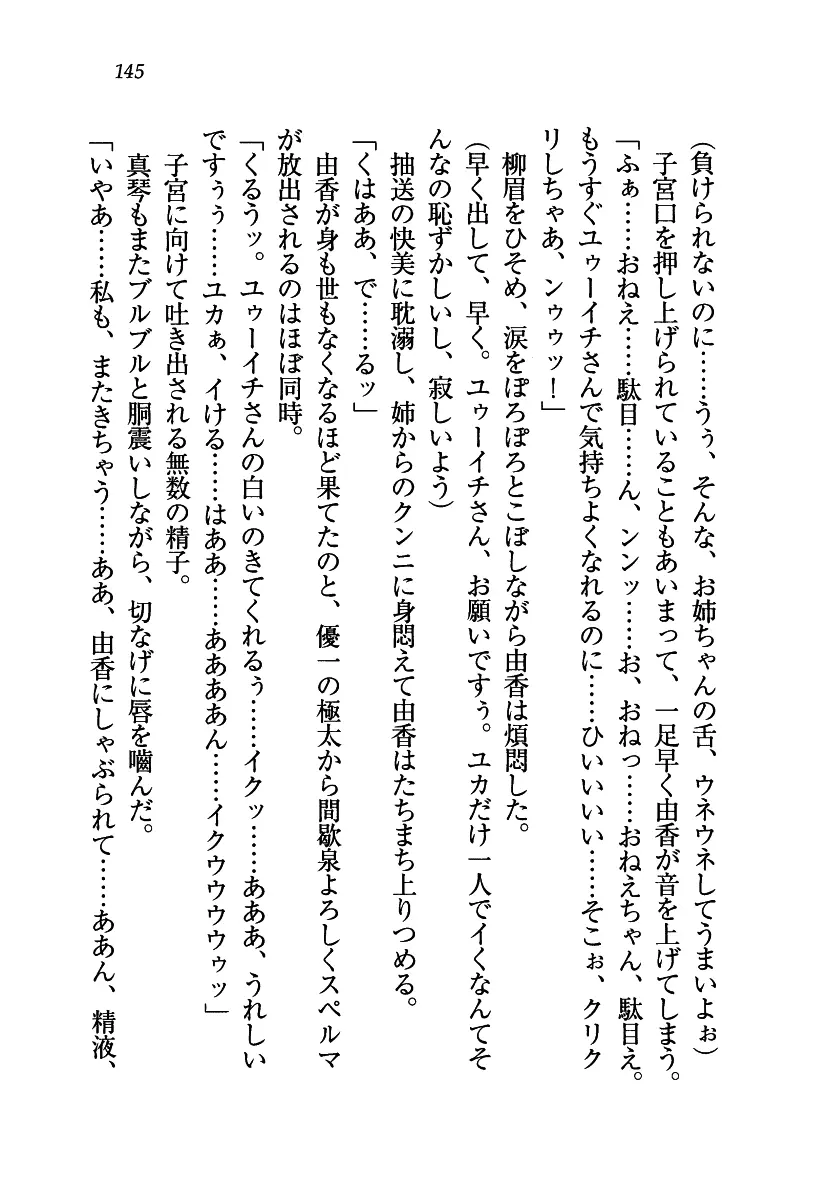 145
(負けられないのに……うぅ、そんな、お姉ちゃんの舌、ウネウネしてうまいよぉ)
子宮口を押し上げられていることもあいまって、一足早く由香が音を上げてしまう。
「ふぁ……おねえ……駄目……ん、ンンッ……お、おねっ……おねえちゃん、駄目え。
もうすぐユゥーイチさんで気持ちよくなれるのに……ひいいいい……そこぉ、クリク
リしちゃあ、ンゥゥッ！」
柳眉をひそめ、涙をぽろぽろとこぼしながら由香は煩悶した。
(早く出して、早く。ユゥーイチさん、お願いですぅ。ユカだけ一人でイくなんてそ
んなの恥ずかしいし、寂しいよう)
抽送の快美に耽溺し、姉からのクンニに身悶えて由香はたちまち上りつめる。
「くはああ、で……るッ」
由香が身も世もなくなるほど果てたのと、優一の極太から間歇泉よろしくスペルマ
が放出されるのはほぼ同時。
「くるうッ。ユゥーイチさんの白いのきてくれるぅ……イクッ……あああ、うれしい
ですぅぅ……ユカぁ、イける……はああ……ああああん……イクウウウウゥッ」
子宮に向けて吐き出される無数の精子。
真琴もまたブルブルと胴震いしながら、切なげに唇を嚙んだ。
「いやあ……私も、またきちゃう……ああ、由香にしゃぶられて……ああん、精液、